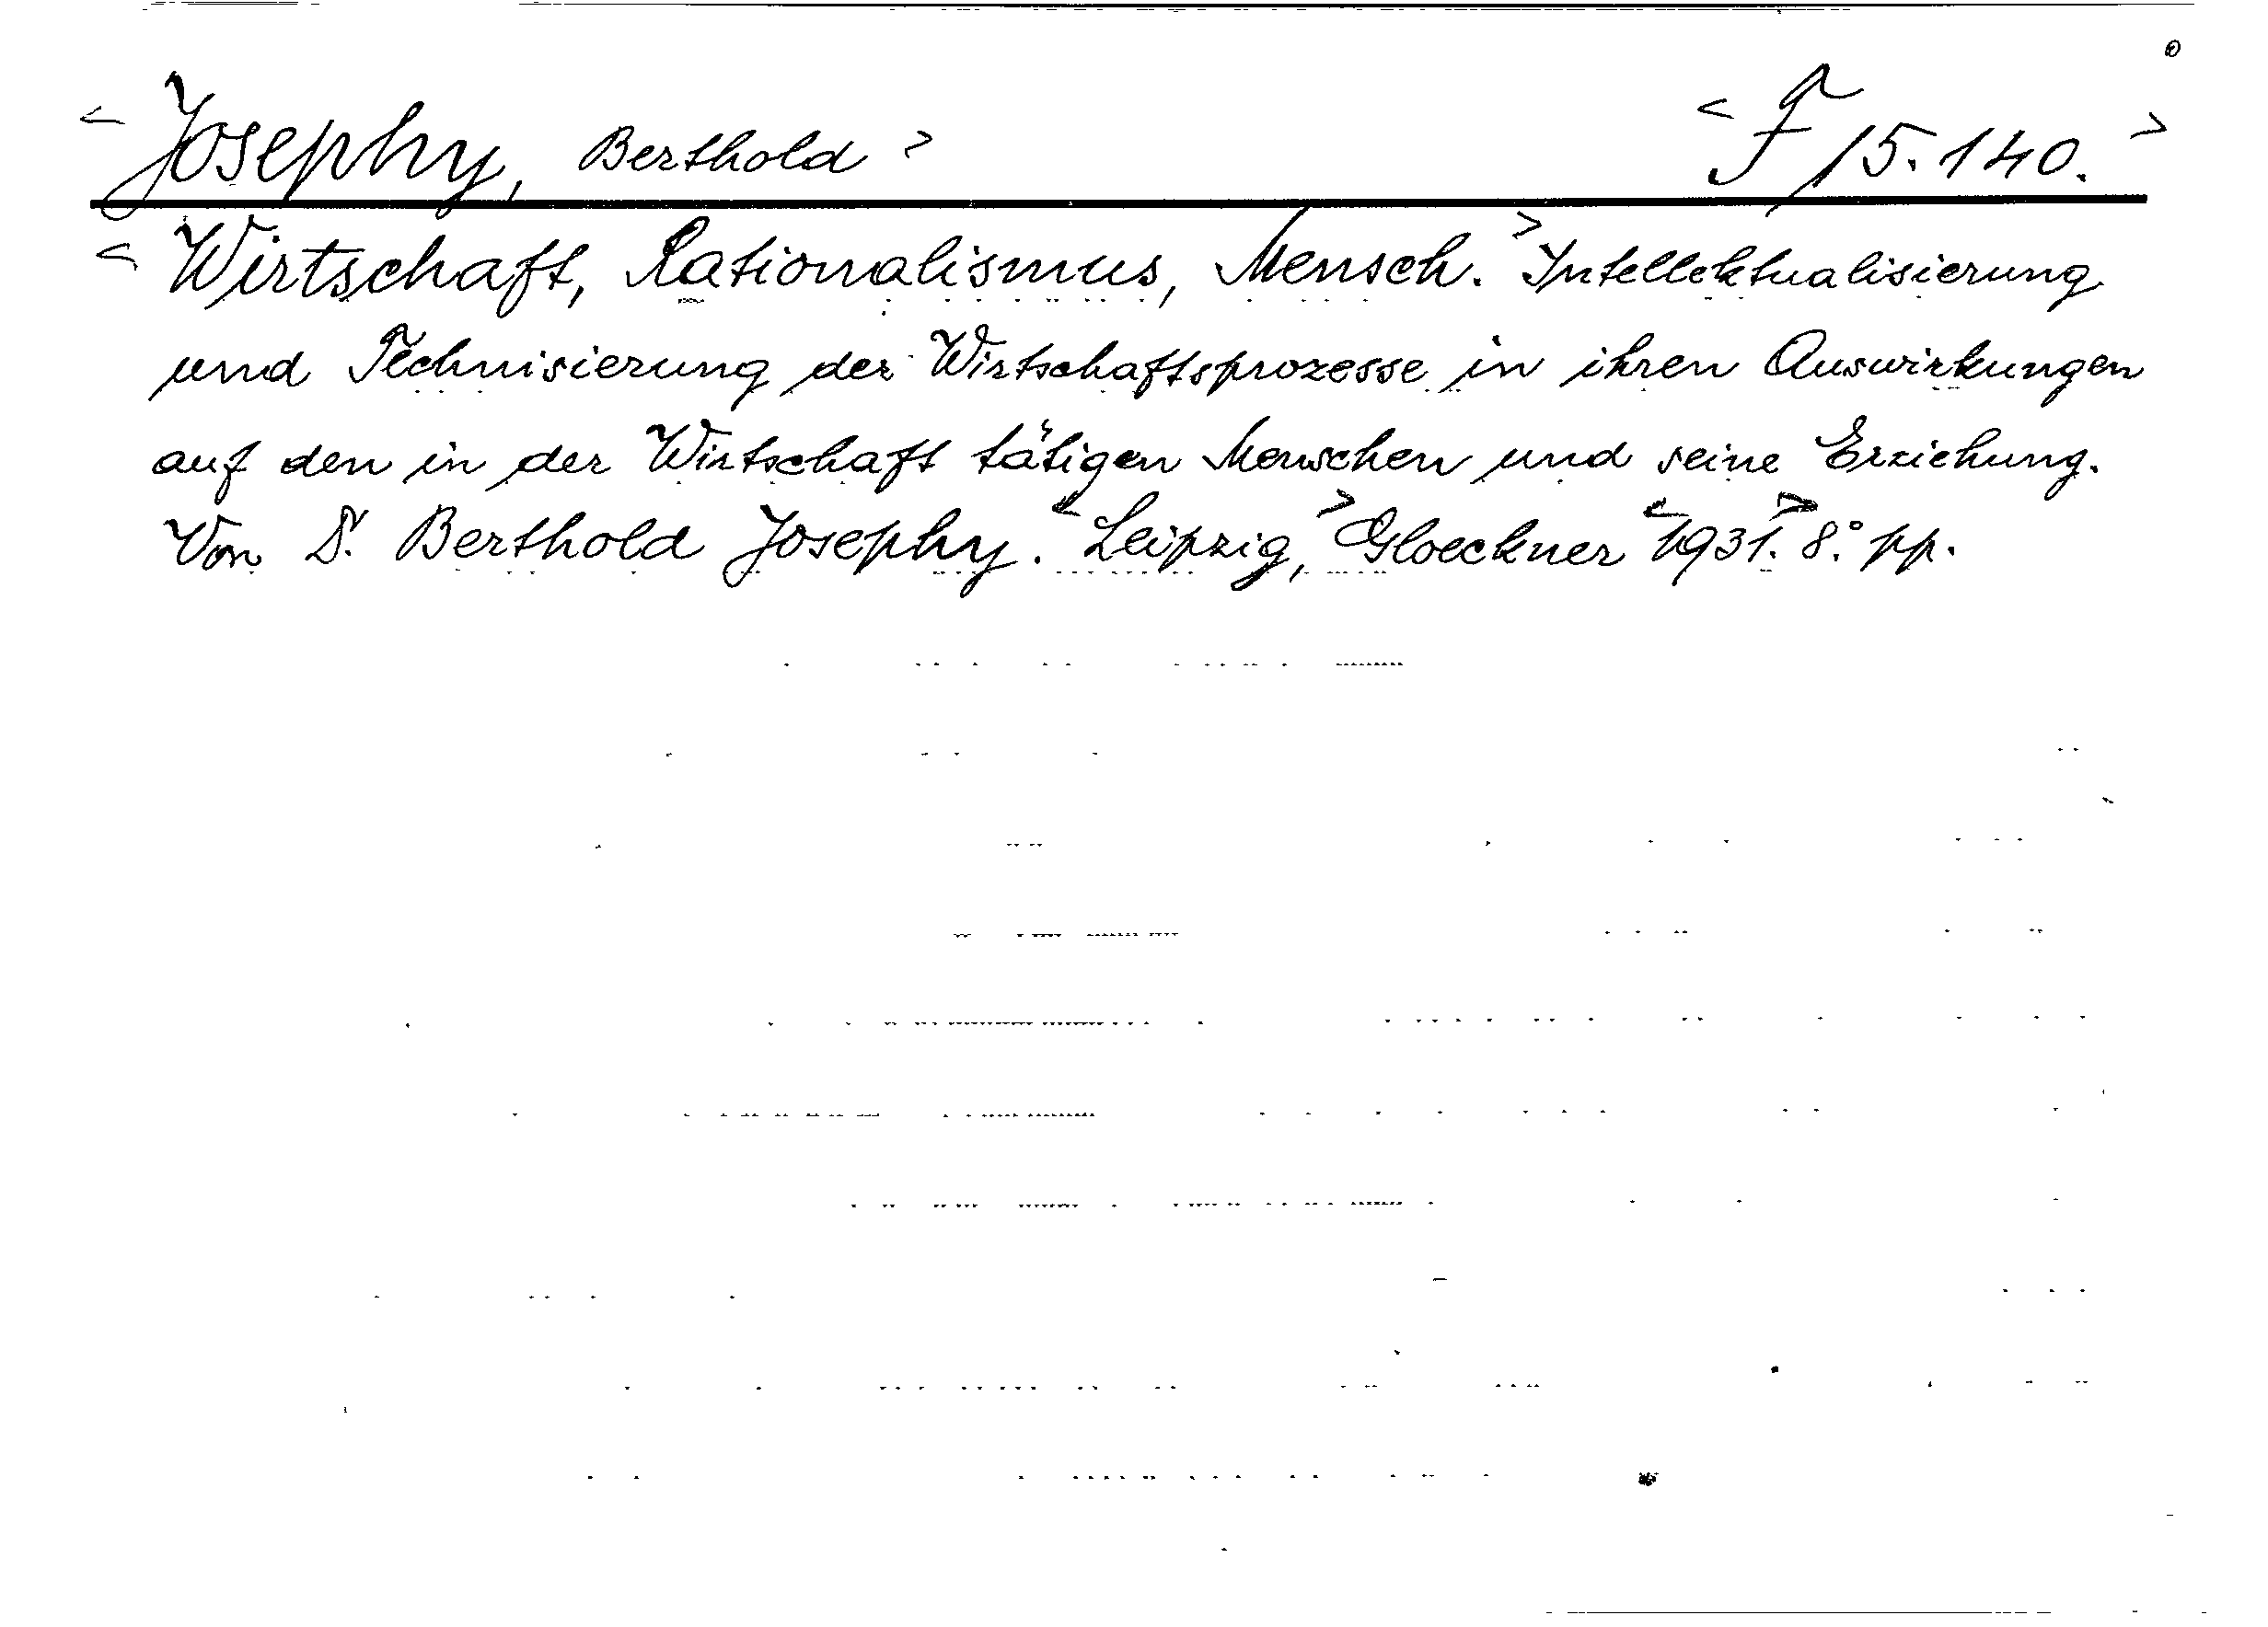 < Josephy, Berthold > < F 15.140. >
< Wirtschaft, Rationalismus, Mensch. > Intellektualisierung
und Technisierung der Wirtschaftsprozesse in ihren Auswirkungen
auf den in der Wirtschaft tätigen Menschen und seine Erziehung.
Von Dr. Berthold Josephy. < Leipzig, > Gloeckner < 1931. > 8.° pp.